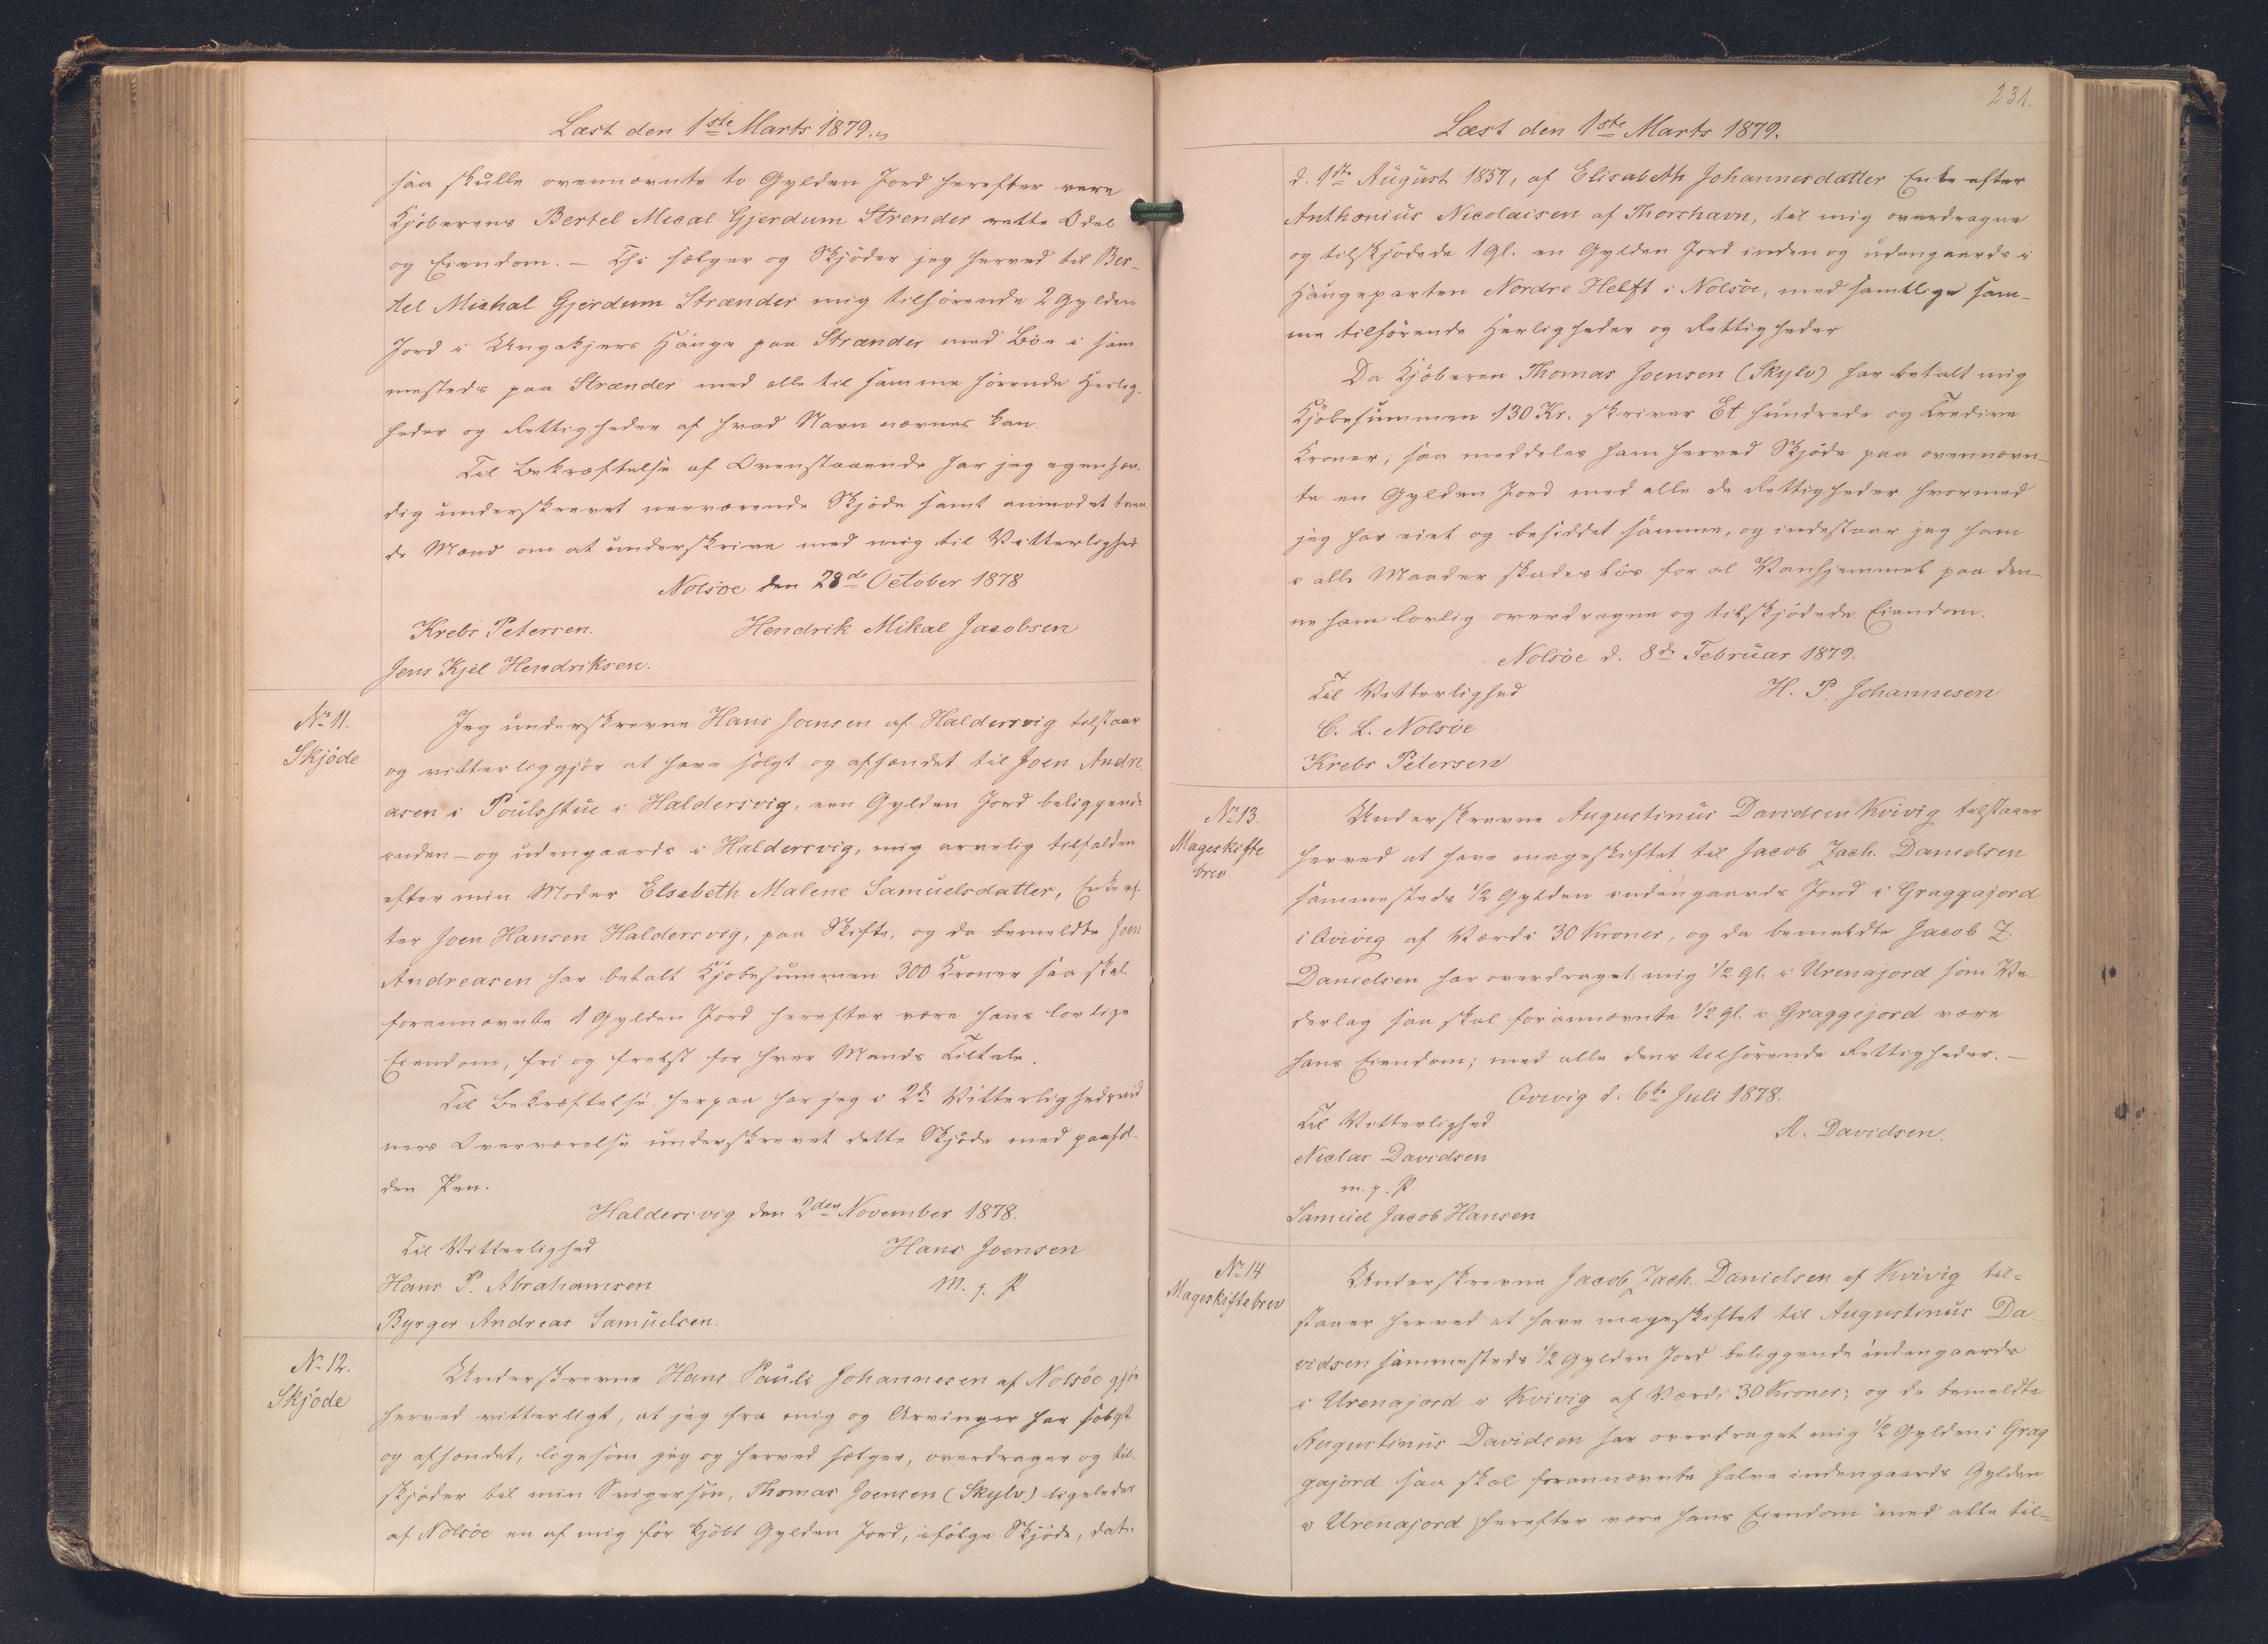 Læst den 1ste Marts 1879.
saa skulle ovennævnte to Gylden Jord herefter være
Kjøberens Bertel Mical Gjerdum Strender rette Odel
og Eiendom. – Thi sælger og Skjøder jeg herved til Ber-
tel Michal Gjerdum Strænder mig tilhørende 2 Gylden
Jord i Hauge paa Strænder med Bøe i sam
mesteds paa Strænder med alle til samme hørende Herlig-
heder og Rettigheder af hvad Navn nævnes kan.
Til Bekræftelse af Ovenstaaende har jeg egenhæn-
dig underskrevet nærværende Skjøde samt anmodet tven-
de Mænd om at underskrive med mig til Vitterlighed.
Nolsöe den 28de October 1878
Krebs Petersen. Hendrik Mikal Jacobsen
Jens Kjel Hendriksen.
No 11.
Skjöde
Jeg underskrevne Hans Joensen af Haldersvig tilstaar
og vitterliggjør at have solgt og afhændet til Joen Andre
asen i Poulsstue i Haldersvig, een Gylden Jord beliggende
inden- og udengaards i Haldersvig, mig arvelig tilfalden
efter min Moder Elsebeth Malene Samuelsdatter, Enke ef-
ter Joen Hansen Haldersvig, paa Skifte, og da bemeldte Joen
Andreasen har betalt Kjøbesummen 300 Kroner saa skal
forannævnte 1 Gylden Jord herefter være hans lovlige
Eiendom, fri og frelst for hver Mands Tiltale.
Til Bekræftelse herpaa har jeg i 2de Vitterlighedsvid
ners Overværelse underskrevet dette Skjøde med paahol-
den Pen.
Haldersvig den 2den November 1878.
Til Vitterlighed Hans Joensen
Hans P. Abrahamsen m. p. P
Byrger Andreas Samuelsen.
No 12.
Skjöde
Underskrevne Hans Pauli Johannesen af Nolsöe gjør
herved vitterligt, at jeg fra mig og Arvinger har solgt
og afhændet, ligesom jeg og herved sælger, overdrager og til-
skjøder til min Svigersøn, Thomas Joensen (Skylv) ligeledes
af Nolsöe en af mig før kjøbt Gylden Jord, ifølge Skjøde, dat.
231.
Læst den 1ste Marts 1879.
d. 1ste August 1857, af Elisabeth Johannesdatter Enke efter
Anthonius Nicolaisen af Thorshavn, til mig overdragne
og tilskjødede 1 gl. en Gylden Jord inden og udengaards i
Haugeparten Nordre Helft i Nolsöe, med samtlige sam-
me tilhørende Herligheder og Rettigheder
Da Kjøberen Thomas Joensen (Skylv) har betalt mig
Kjøbesummen 130 Kr. skriver Et hundrede og Tredive
Kroner, saa meddeles ham herved Skjøde paa ovennævn-
te en Gylden Jord med alle de Rettigheder hvormed
jeg har eiet og besiddet samme, og indestaar jeg ham
i alle Maader skadesløs for al Vanhjemmel paa den-
ne ham lovlig overdragne og tilskjødede Eiendom.
Nolsöe d. 8de Februar 1879.
Til Vitterlighed H. P. Johannesen
C. L. Nolsöe
Krebs Petersen
No 13.
Mageskifte
brev
Underskrevne Augustinus Davidsen Kvivig tilstaaer
herved at have mageskiftet til Jacob Zach. Danielsen
sammesteds 1/2 Gylden indengaards Jord i Graggajord
i Qvivig af Værdi 30 Kroner, og da bemeldte Jacob Z.
Danielsen har overdraget mig 1/2 gl. i Urenajord som Ve-
derlag saa skal forannævnte 1/2 gl. i Graggejord være
hans Eiendom; med alle dens tilhørende Rettigheder. –
Qvivig d. 6te Juli 1878.
Til Vitterlighed A. Davidsen.
Niclas Davidsen
m. p. P.
Samuel Jacob Hansen
No 14
Mageskiftebrev
Underskrevne Jacob Zach. Danielsen af Kvivig til-
staaer herved at have mageskiftet til Augustinus Da-
vidsen sammesteds 1/2 Gylden Jord beliggende indengaards
i Urenajord i Kvivig af Værdi 30 Kroner; og da bemeldte
Augustinus Davidsen har overdraget mig 1/2 Gylden i Grag
gajord saa skal forannævnte halve indengaards Gylden
i Urenajord herefter være hans Eiendom med alle til-